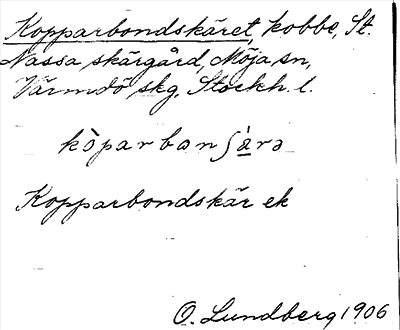 Kopparbondskäret, kobbe, St.
Nassa skärgård, Möja sn,
Värmdö skg, Stockh. l.
kòparbonʃä̀rə
Kopparbondskär ek
O. Lundberg 1906